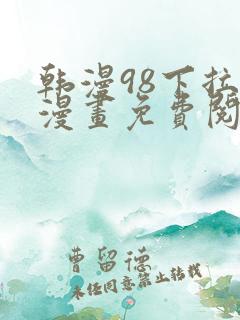 韩漫98下拉
漫畫免費閱
曹留德
未经同意禁止转载